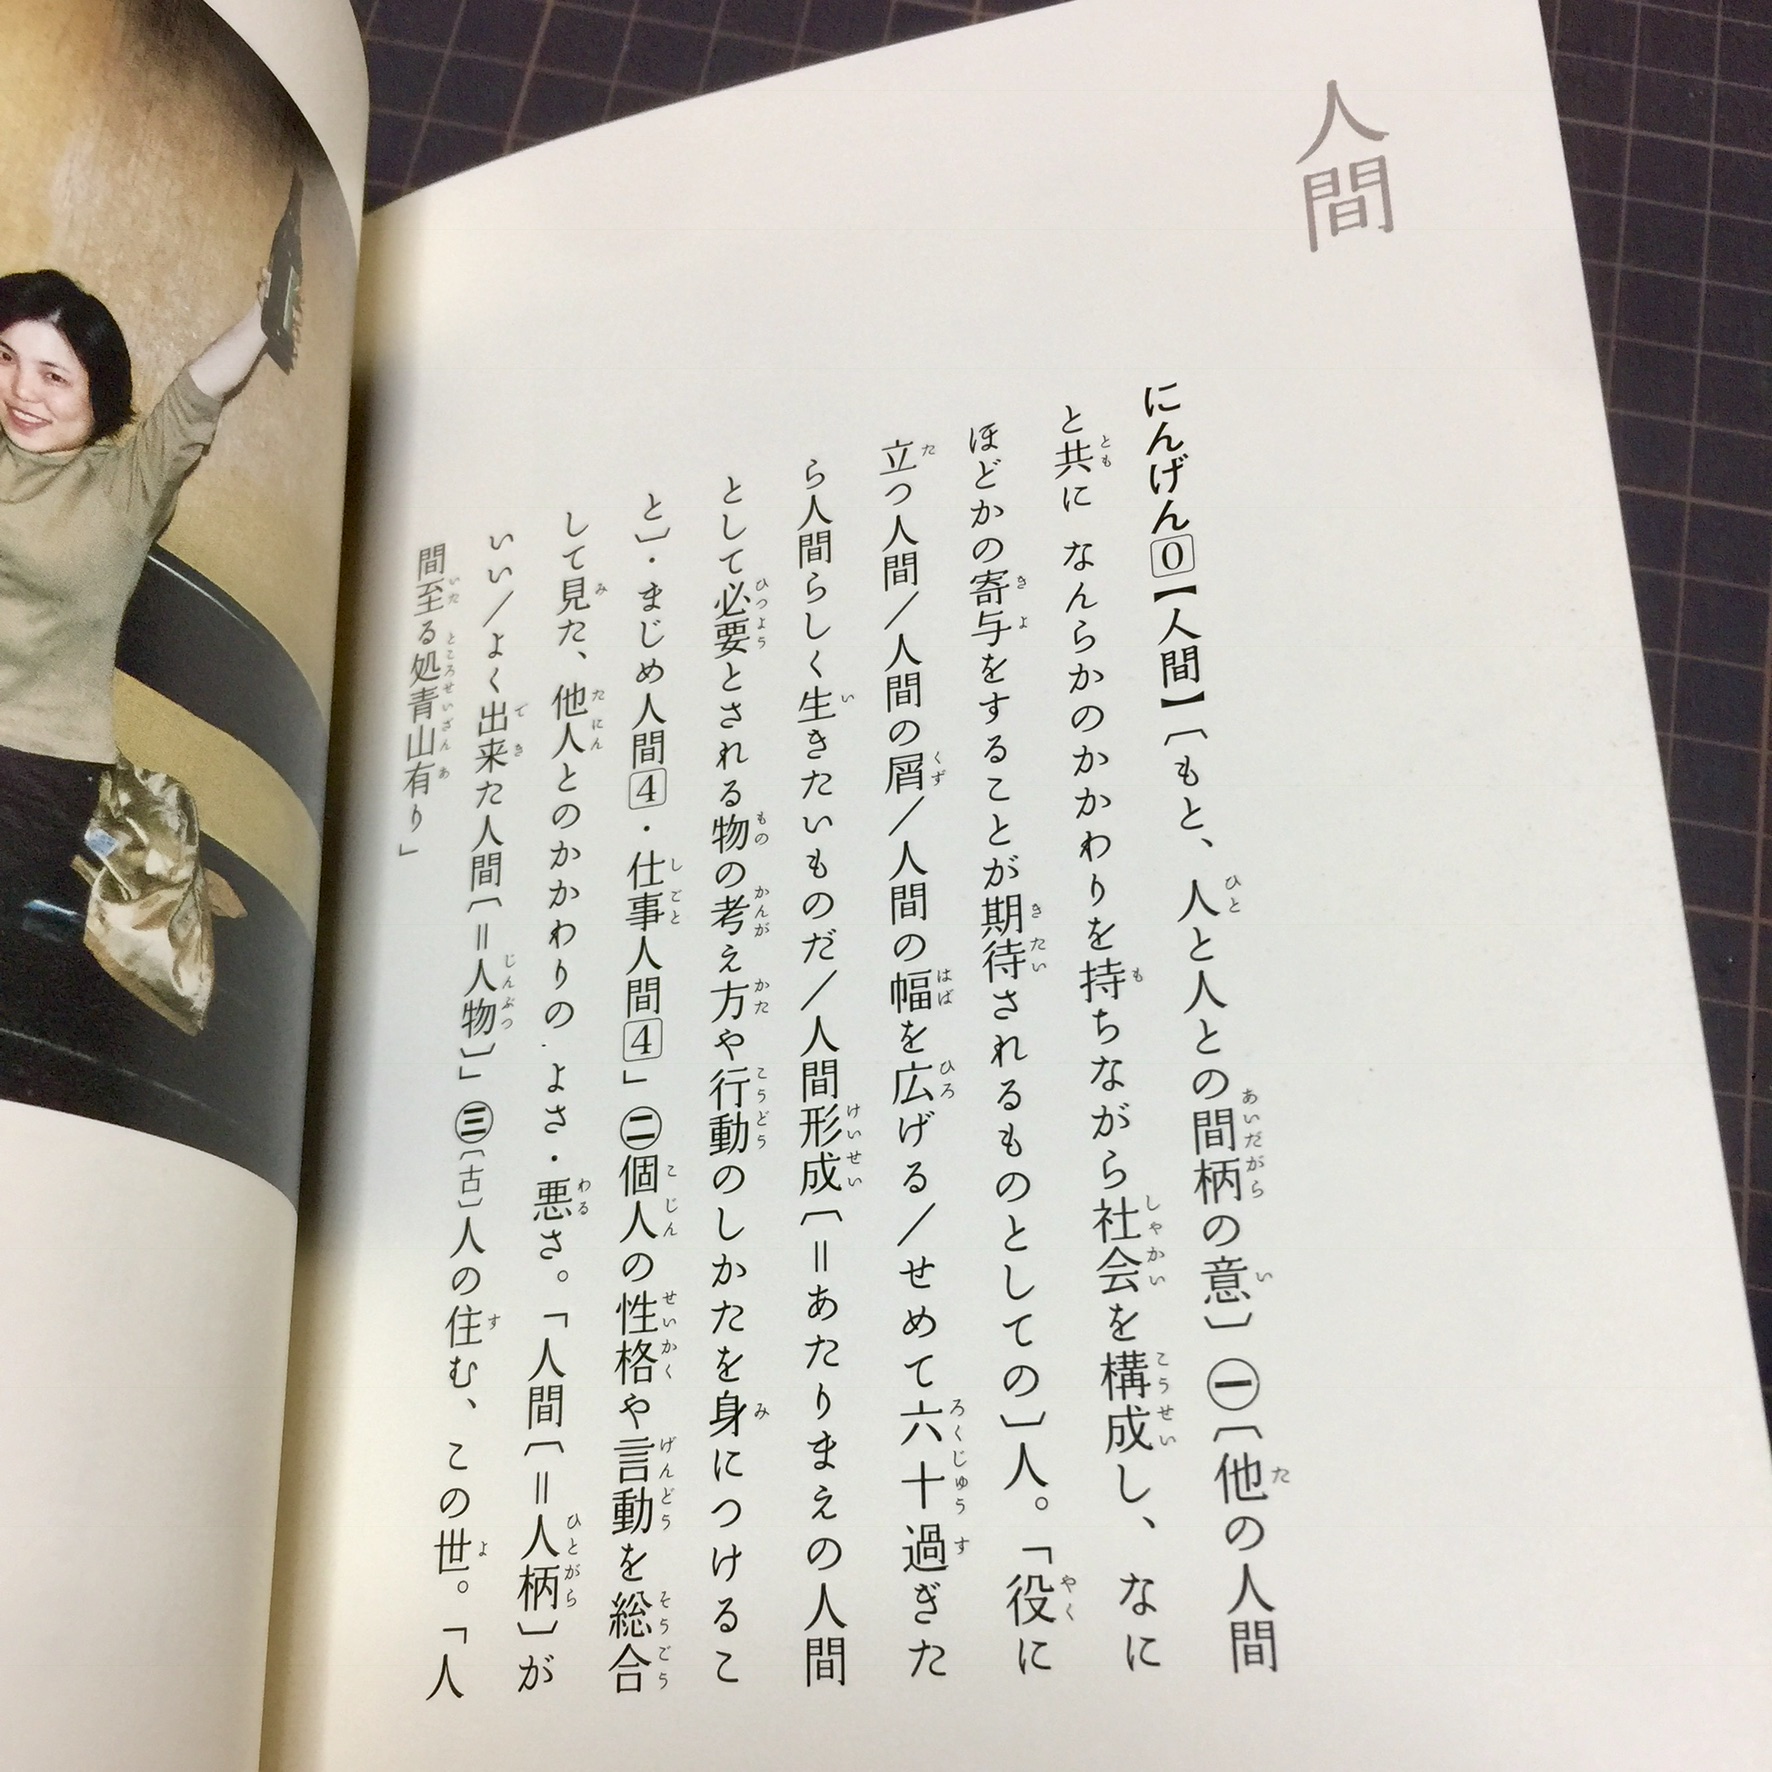 人間
にんげん0【人間】〔もと、人と人との間柄の意〕㊀〔他の人間
と共に なんらかのかかわりを持ちながら社会を構成し、なに
ほどかの寄与をすることが期待されるものとしての〕人。「役に
立つ人間/人間の屑/人間の幅を広げる/せめて六十過ぎた
ら人間らしく生きたいものだ/人間形成〔=あたりまえの人間
として必要とされる物の考え方や行動のしかたを身につけるこ
と〕・まじめ人間4・仕事人間4」㊁個人の性格や言動を総合
して見た、他人とのかかわりの.よさ・悪さ。「人間〔=人柄〕が
いい/よく出来た人間〔=人物〕」㊂〔古〕人の住む、この世。「人
間至る処青山有り」